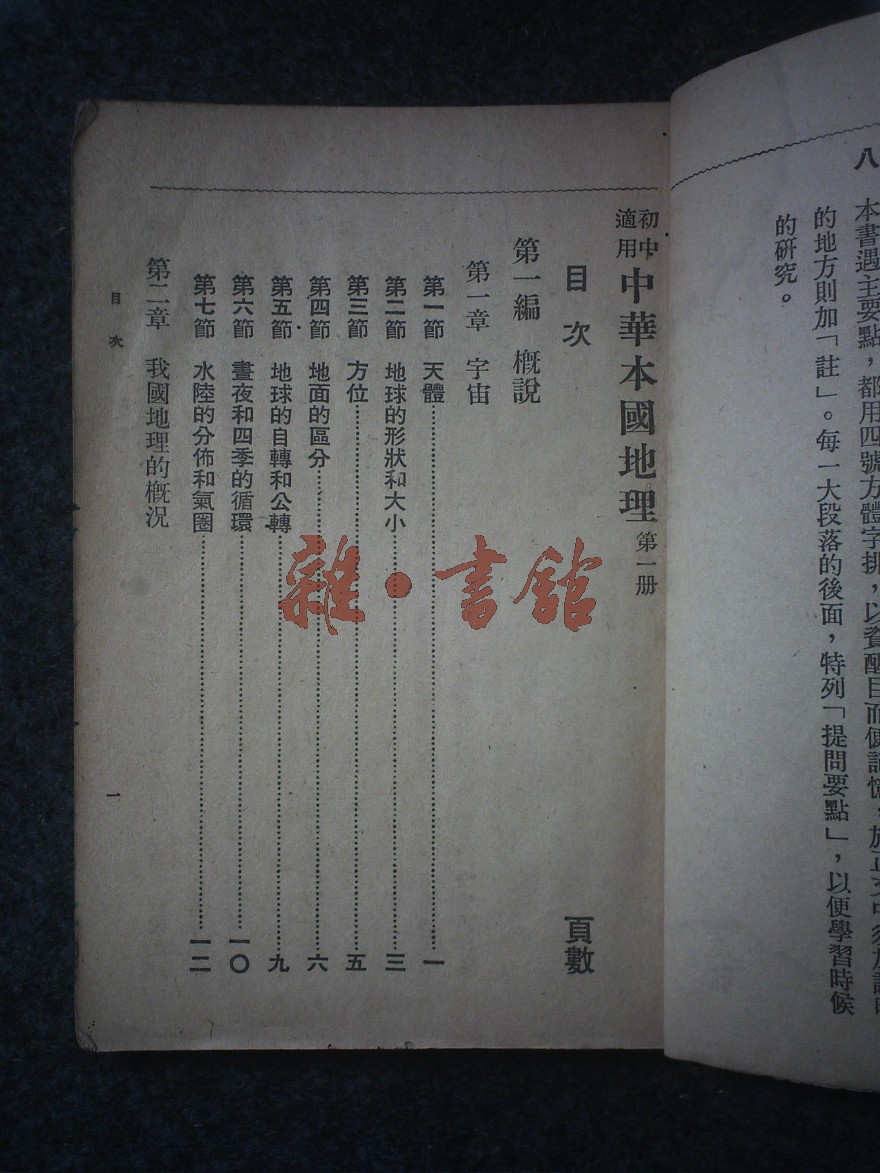 八
本書遇主要點，都用四號方體字排，以資醒目而便記憶，於正文中須加註
的地方則加「註」。每一大段落的後面，特列「提問要點」，以便學習時候
的研究。
初中適用 中華本國地理 第一册
目次 頁數
第一編 概說
第一章 宇宙
第一節 天體 一
第二節 地球的形狀和大小 三
第三節 方位 五
第四節 地面的區分 六
第五節 地球的自轉和公轉 九
第六節 晝夜和四季的循環 一〇
第七節 水陸的分佈和氣圈 一二
第二章 我國地理的概況
目次 一
雜·書館